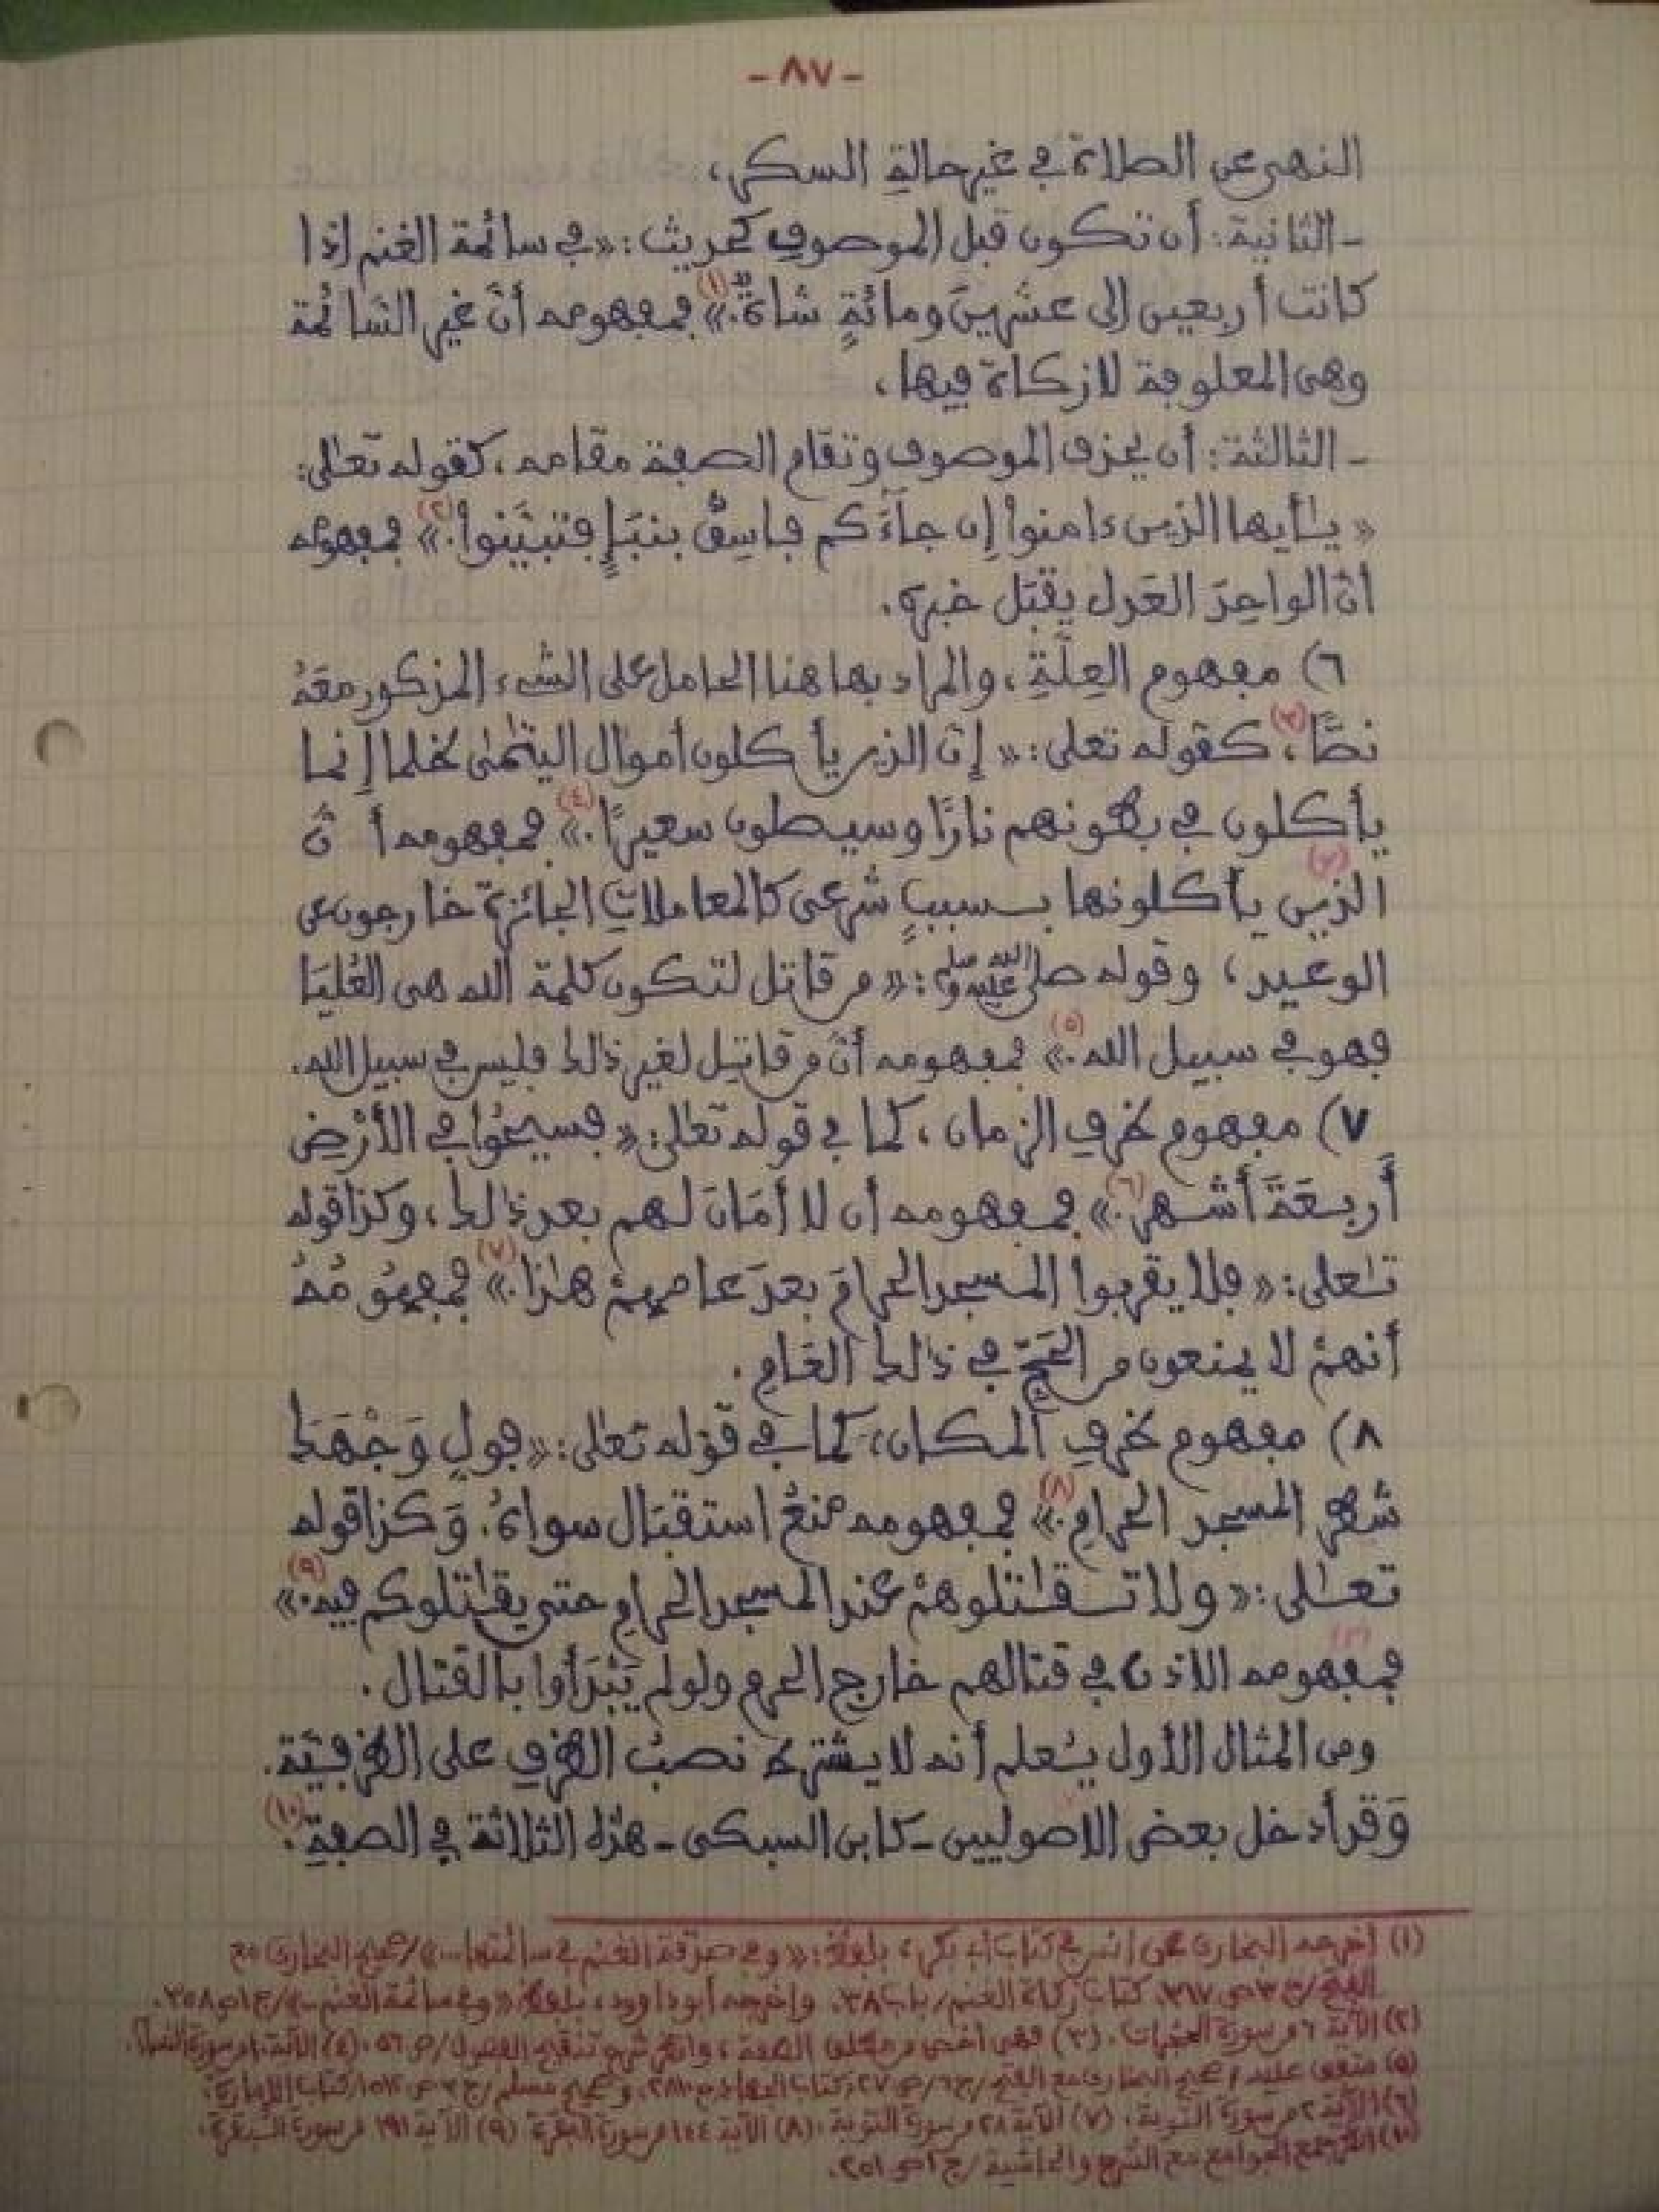 - ٨٧ -
النهي عن الصلاة في غير حالةِ السكر،
- الثانية: أن تكون قبل الموصوف كحديث: «في سائمة الغنم إذا
كانت أربعين إلى عشرينَ ومائةٍ شاةٌ.»(١) فمفهومه أنَّ غير السَّائمة
وهي المعلوفة لا زكاة فيها.
- الثالثة: أن يحذف الموصوف وتقام الصفة مقامه، كقوله تعالى:
«يـٰأيها الذين ءامنوا إن جآءَكم فاسِقُ بنبَإٍ فتبيَّنوا.»(٢) فمفهومه
أنّ الواحِدَ العَدل يقبَل خبره.
٦) مفهوم العِلَّةِ، والمراد بها هنا الحامل على الشيء المذكور معَهُ
نصًّا(٣)، كقوله تعلى: «إنّ الذين يأكلون أموال اليتٰمى ظلما إنما
يأكلون في بطونهم نارًا وسيصلون سعيرًا.»(٤) فمفهومه أنّ
الذين يأكلونها بسببٍ شرعى كالمعاملاتِ الجائزة خارجون عن
الوعيد، وقوله صلى الله عليه وسلم: «من قاتل لتكون كلمة الله هى العُليَا
فهو في سبيل الله.»(٥) فمفهومه أنّ من قاتل لغير ذالك فليس في سبيل الله.
٧) مفهوم ظرفِ الزمان، كما في قوله تعٰلى: «فسيحُوا في الأرْضِ
أربعَةَ أشهر.»(٦) فمفهومه أن لا أمَانَ لهم بعد ذٰلك، وكذا قوله
تـٰعلى: «فلا يقربوا المسجد الحرامَ بعدَ عامهِمْ هٰذا.»(٧) فمفهُومُهُ
أنهمْ لا يمنعون من الحَجّ في ذٰلك العَامِ.
٨) مفهوم ظرفِ المكان، كما في قوله تعٰلى: «فولِ وَجْهَكَ
شطر المسجد الحرامِ.»(٨) فمفهومه منعُ استقبَال سواهُ. وَكذا قوله
تعـٰلى: «ولا تـقـٰتلوهمْ عند المسجد الحرامِ حتى يقـٰتلوكم فيه.»(٩)
فمفهومه الاذن في قتالهم خارج الحرم ولو لم يَبْدَأوا بالقتال.
ومن المثال الأول يُعلم أنه لا يشترط نصبُ الظرفِ على الظرفيّة.
وَقد أدخل بعض الاصوليين - كابن السبكى - هذه الثلاثة في الصفةِ.(١٠)
(١) أخرجه البخارى عن انس في كتاب أبى بكر، بلفظ: «وفي صدقة الغنم في سائمتها...»/صحيح البخارى مع
الفتح/ج ٣ ص ٣١٧، كتاب زكاة الغنم/باب ٣٨. واخرجه أبو داوود، بلفظ: «وفي سائمة الغنم»/ج ١ ص ٣٥٨.
(٢) الآية ٦ من سورة الحجرات. (٣) فهى أخص من مطلق الصفة، وانظر شرح تنقيح الفصول/ص ٥٦. (٤) الآية ١٠ من سورة النساء.
(٥) متفق عليه/صحيح البخارى مع الفتح/ج ٦/ص ٢٧، كتاب الجهاد، وصحيح مسلم/ج ٣ ص، كتاب الإمارة.
(٦) الآية ٢ من سورة التوبة. (٧) الآية ٢٨ من سورة التوبة. (٨) الآية ١٤٤ من سورة البقرة (٩) الآية ١٩١ من سورة البقرة.
(١٠) انظر جمع الجوامع مع الشرح والحاشية/ج ١ ص ٢٥١.